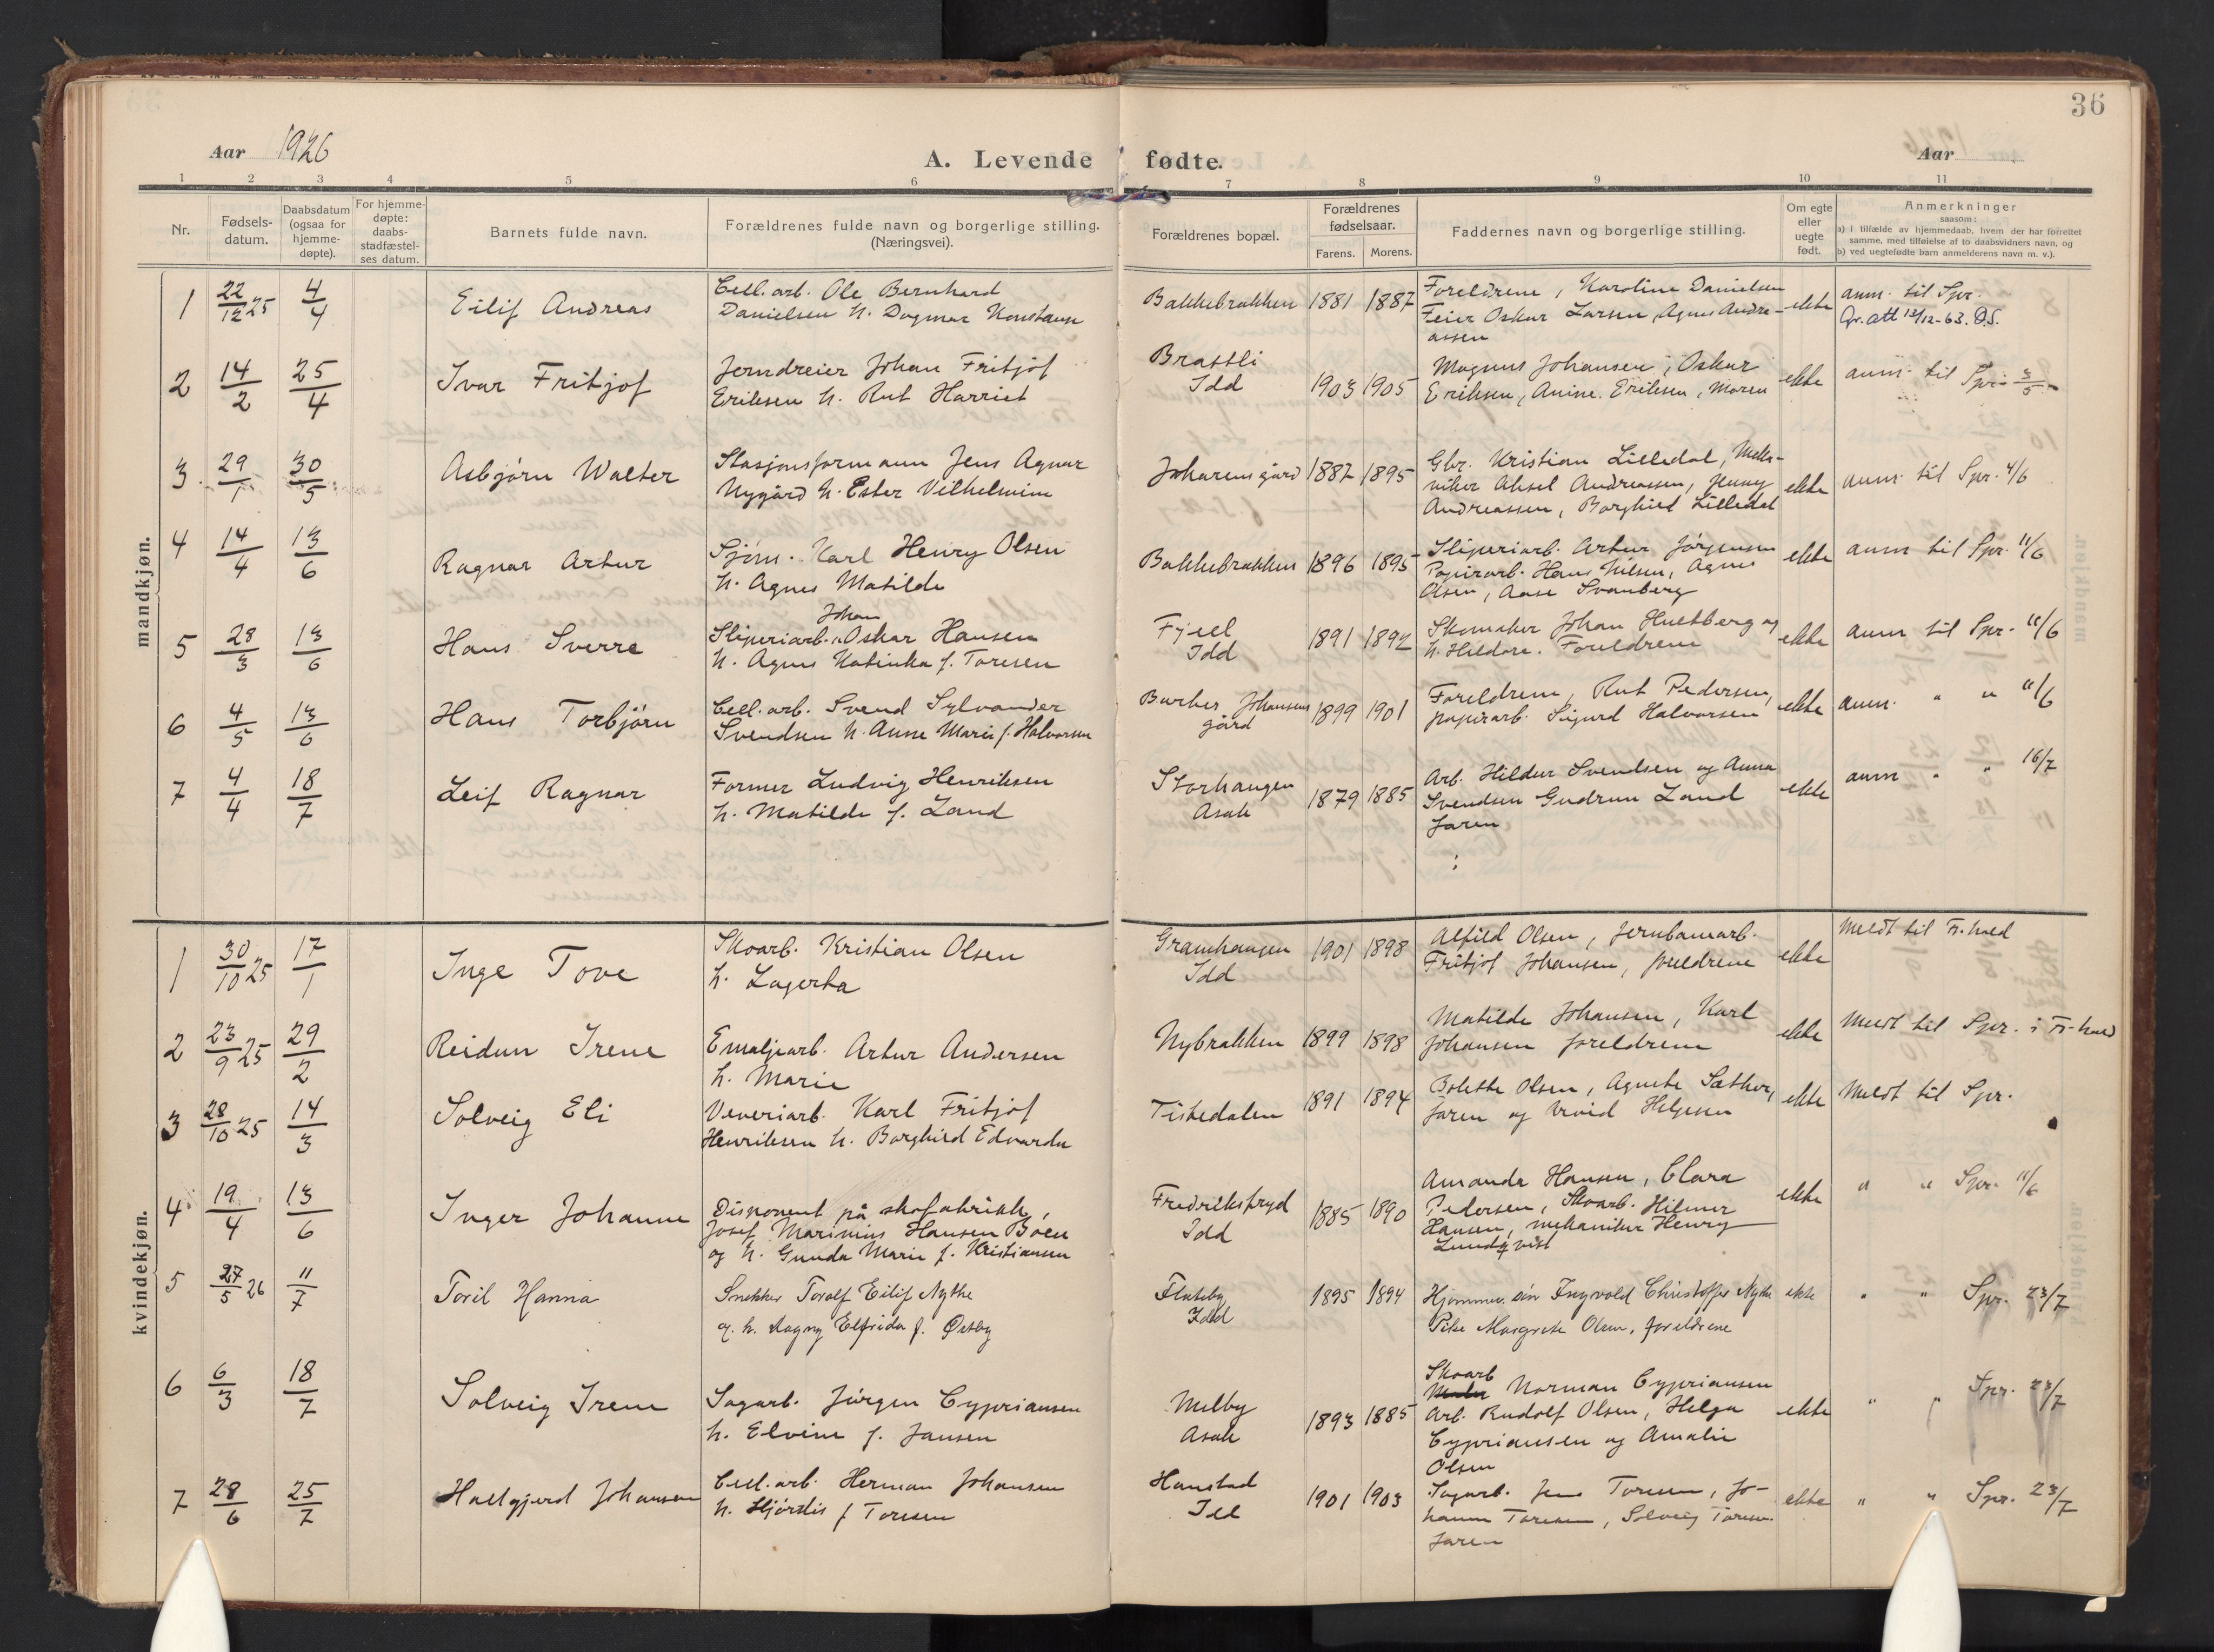 36
Aar 1926
A. Levende fødte.
Aar
1 2 3 4 5 6 7 8 9 10 11
Nr.
Fødsels-
datum.
Daabsdatum
(ogsaa for
hjemme-
døpte).
For hjemme-
døpte:
daabs-
stadfæstel-
ses datum.
Barnets fulde navn.
Forældrenes fulde navn og borgerlige stilling.
(Næringsvei).
Forældrenes bopæl.
Forældrenes
fødselsaar.
Farens. Morens.
Faddernes navn og borgerlige stilling.
Om egte
eller
uegte
født.
Anmerkninger
saasom:
a) i tilfælde av hjemmedaab, hvem der har forrettet
samme, med tilføielse af to daabsvidners navn, og
b) ved uegtefødte barn anmelderens navn m. v.).
mandkjøn.
1 22/12 25 4/4 Eilif Andreas
Cell. arb. Ole Bernhard
Danielsen h. Dagmar Konstanse
Bakkebrakken 1881 1887
Foreldrene, Karoline Danielsen
Feier Oskar Larsen, Agnes Andre-
assen
ekte
anm. til Spr.
Gr. att 13/12-63. O.S.
2 14/2 25/4 Ivar Fritjof
Jerndreier Johan Fritjof
Eriksen h. Rut Harriet
Brattli
Idd
1903 1905
Magnus Johansen, Oskar
Eriksen, Anine Eriksen, Moren
ekte
anm. til Spr. 3/5
3 29/1 30/5 Asbjørn Walter
Stasjonsformann Jens Agnar
Nygård h. Ester Vilhelmine
Johansensgård 1887 1895
Gbr. Kristian Lilledal, Meka-
niker Aksel Andreassen, Jenny
Andreassen, Borghild Lilledal
ekte
anm. til Spr. 4/6
4 14/4 13/6 Ragnar Artur
Sjøm. Karl Henry Olsen
h. Agnes Matilde
Bakkebrakken 1896 1895
Sliperiarb. Artur Jørgensen
Papirarb. Hans Nilsen, Agnes
Olsen, Aase Svanberg
ekte
anm til Spr. 11/6
5 28/3 13/6 Hans Sverre
Johan
Sliperiarb. Oskar Hansen
h. Agnes Katinka f. Toresen
Fjell
Idd
1891 1892
Skomaker Johan Hultberg og
h. Hildore. Foreldrene
ekte
anm til Spr. 11/6
6 4/5 13/6 Hans Torbjørn
Cell. arb. Svend Sylvander
Svendsen h. Anne Marie f. Halvorsen
Johansens
gård
1899 1901
Foreldrene, Rut Pedersen,
papirarb. Sigurd Halvorsen
ekte
anm. " " 11/6
7 4/4 18/7 Leif Ragnar
Former Ludvig Henriksen
h. Matilde f. Land
Storhaugen
Asak
1879 1885
Arb. Hildur Svendsen og Anna
Svendsen Gudrun Land
Faren
ekte
anm " " 16/7
kvindekjøn.
1 30/10 25 17/1 Inge Tove
Skoarb. Kristian Olsen
h. Lagerta
Granhaugen
Idd
1901 1898
Alfild Olsen, Jernbanearb.
Fritjof Johansen, foreldrene
ekte
Meldt til Fr.hald
2 23/9 25 29/2 Reidun Irene
Emaljearb. Artur Andersen
h. Marie
Nybrakken 1899 1898
Matilde Johansen, Karl
Johansen foreldrene
ekte
Meldt til Spr. i Fr.hald
3 28/10 25 14/3 Solveig Eli
Veveriarb. Karl Fritjof
Henriksen h. Borghild Edvarda
Tistedalen 1891 1894
Bolette Olsen, Agnete Sæther,
faren og Arvid Helgesen
ekte
Meldt til Spr.
4 19/4 13/6 Inger Johanne
Disponent på skofabrikk,
Josef Marinius Hansen Boen
og h. Gunda Marie f. Kristiansen
Fredriksfryd
Idd
1885 1890
Amanda Hansen, Clara
Pedersen, Skoarb. Hilmer
Hansen, mekaniker Henry
Lundqvist
ekte
" " Spr. 11/6
5 27/5 26 11/7 Toril Hanna
Snekker Toralf Eilif Nythe
og h. Magny Elfrida f. Østby
Flateby
Idd
1895 1894
Ingvald Christoffer Nythe
Pike Margrete Olsen, foreldrene
ekte
" " Spr. 23/7
6 6/3 18/7 Solveig Irene
Sagarb. Jørgen Cypriansen
h. Elvine f. Jansen
Melby
Asak
1893 1885
Skoarb
Norman Cypriansen
Arb. Rudolf Olsen, Helga
Cypriansen og Amalie
Olsen
ekte
" " Spr. 23/7
7 28/6 25/7 Hallgjerd Johansen
Cell. arb. Herman Johansen
h. Hjørdis f Toresen
Hanstad
Idd
1901 1903
Sagarb. Jens Toresen, Jo-
hanne Toresen, Solveig Toresen.
Faren
ekte
" " Spr. 23/7